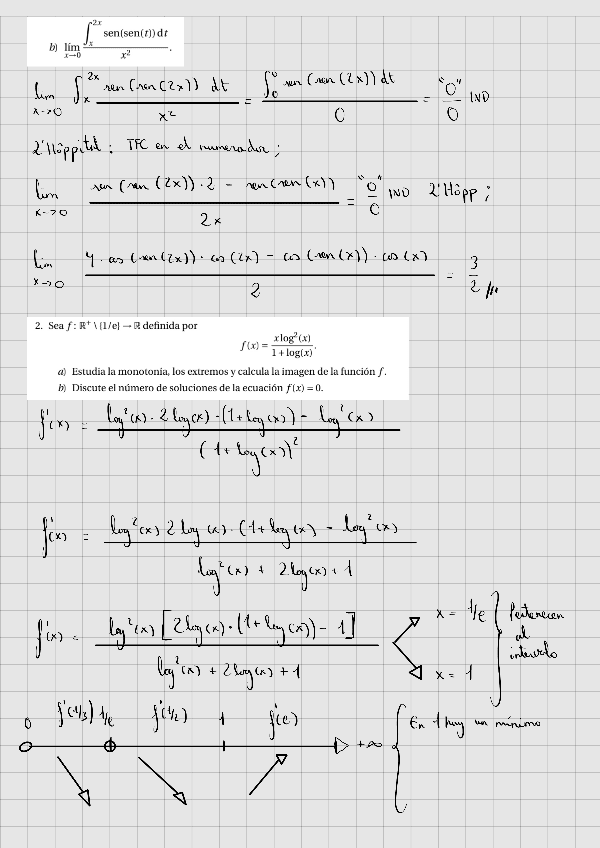 b) lím x→0 ∫ₓ²ˣ sen(sen(t)) dt / x² .
lim x→0 ∫ₓ²ˣ sen(sen(2x)) dt / x² = ∫₀⁰ sen(sen(2x)) dt / 0 = "0"/0 IND
L'Hôppital : TFC en el numerador ;
lim x→0 sen(sen(2x))·2 - sen(sen(x)) / 2x = "0"/0 IND L'Hôpp ;
lim x→0 4·cos(sen(2x))·cos(2x) - cos(sen(x))·cos(x) / 2 = 3/2 //
2. Sea f : ℝ⁺ \ {1/e} → ℝ definida por
f(x) = x log²(x) / 1 + log(x) .
a) Estudia la monotonía, los extremos y calcula la imagen de la función f.
b) Discute el número de soluciones de la ecuación f(x) = 0.
f'(x) = log²(x)·2log(x)·(1+log(x)) - log²(x) / (1+log(x))²
f'(x) = log²(x) 2log(x)·(1+log(x) - log²(x) / log²(x) + 2log(x) + 1
f'(x) = log²(x) [2log(x)·(1+log(x)) - 1] / log²(x) + 2log(x) + 1
x = 1/e
x = 1
Pertenecen
al
intervalo
0 f'(1/3) 1/e f'(1/2) 1 f'(e) +∞
En 1 hay un mínimo